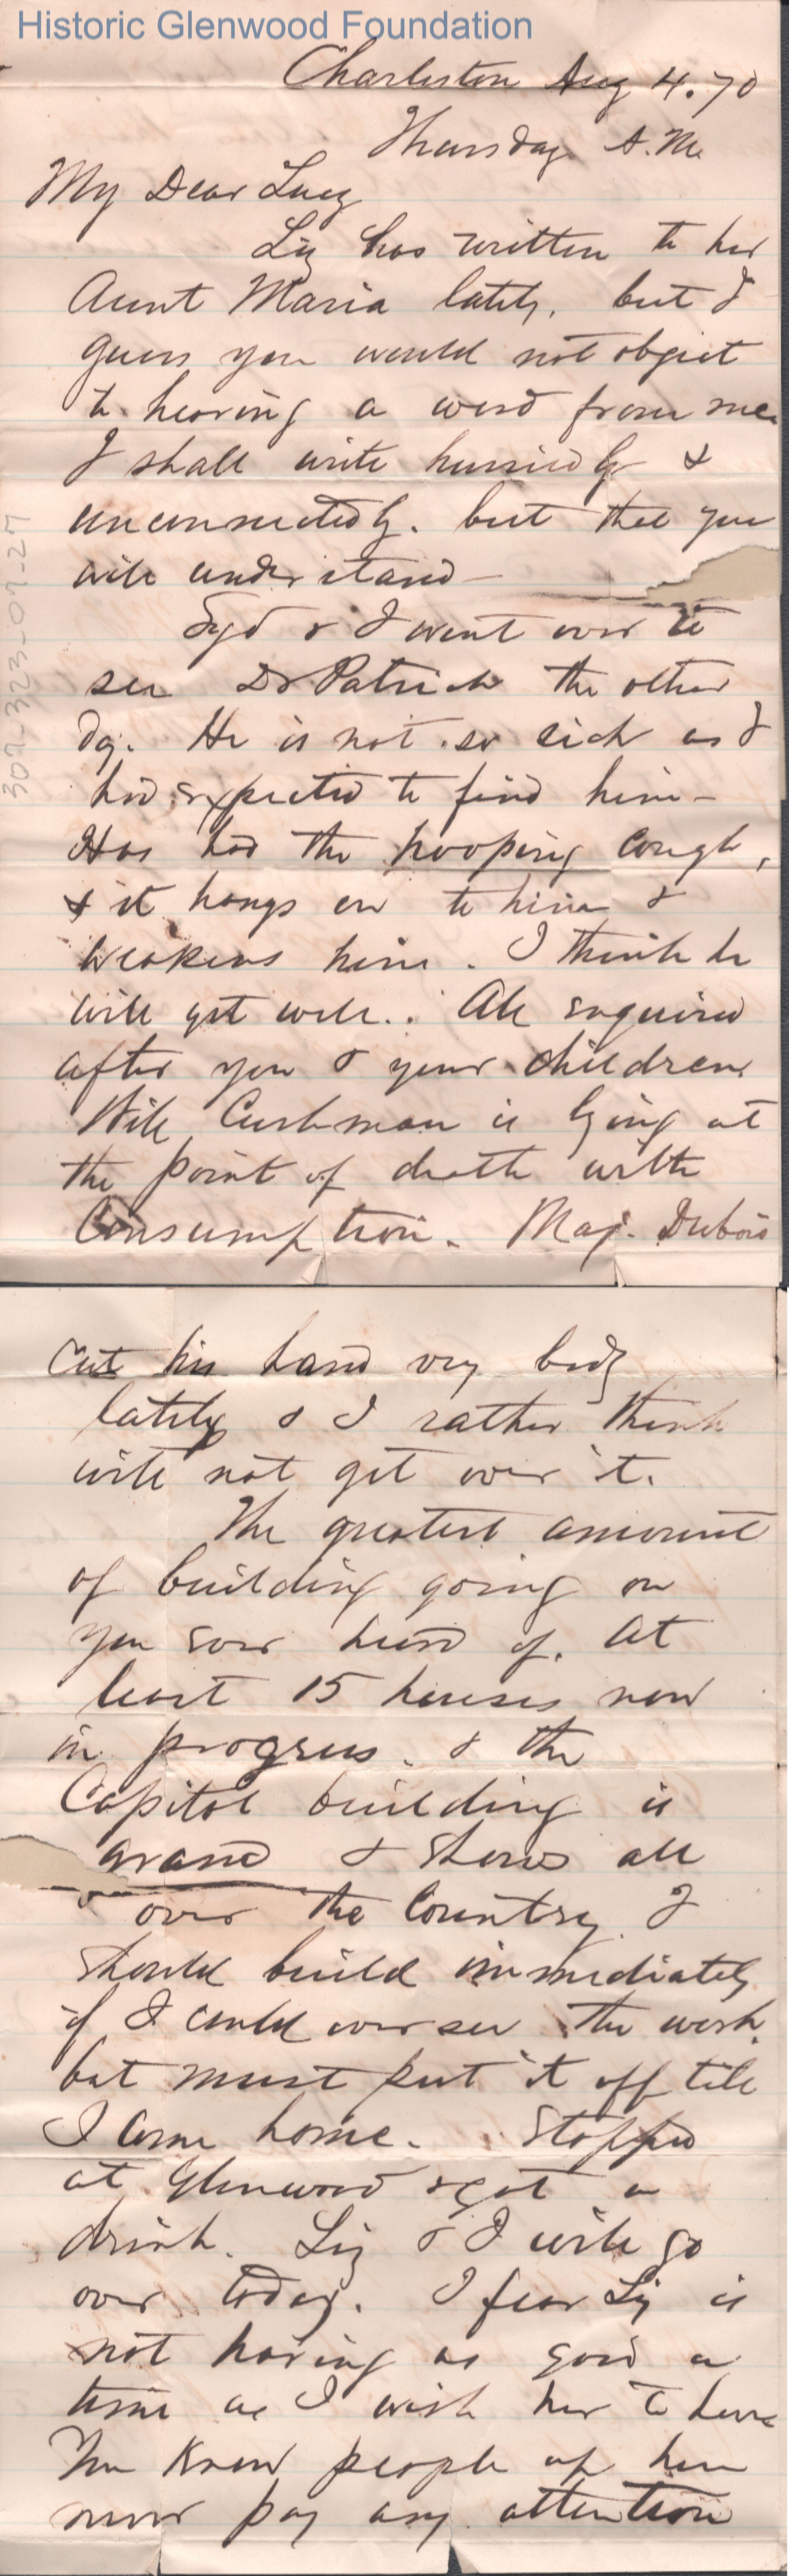 Historic Glenwood Foundation
Charleston Aug 4. 70
Thursday A.M.
My Dear Lucy
Liz has written to her
Aunt Maria lately, but I
guess you would not object
to hearing a word from me
I shall write hurriedly &
unconnectedly. but that you
will understand —
Syd & I went over to
see Dr Patrick the other
day. He is not so sick as I
had expected to find him —
Has had the hooping cough,
& it hangs on to him &
weakens him. I think he
will get well. All enquired
after you & your children.
Will Cushman is lying at
the point of death with
Consumption. Maj. Dubois
307-323-07-27
Cut his hand very badly
lately & I rather think
will not get over it.
The greatest amount
of building going on
you ever heard of. At
least 15 houses now
in progress. & the
Capitol building is
grand & shows all
over the Country. I
should build immediately
if I could oversee the work.
but must put it off till
I come home. Stopped
at Glenwood & got a
drink. Liz & I will go
over today. I fear Liz is
not having as good a
time as I wish her to have
You know people up here
never pay any attention